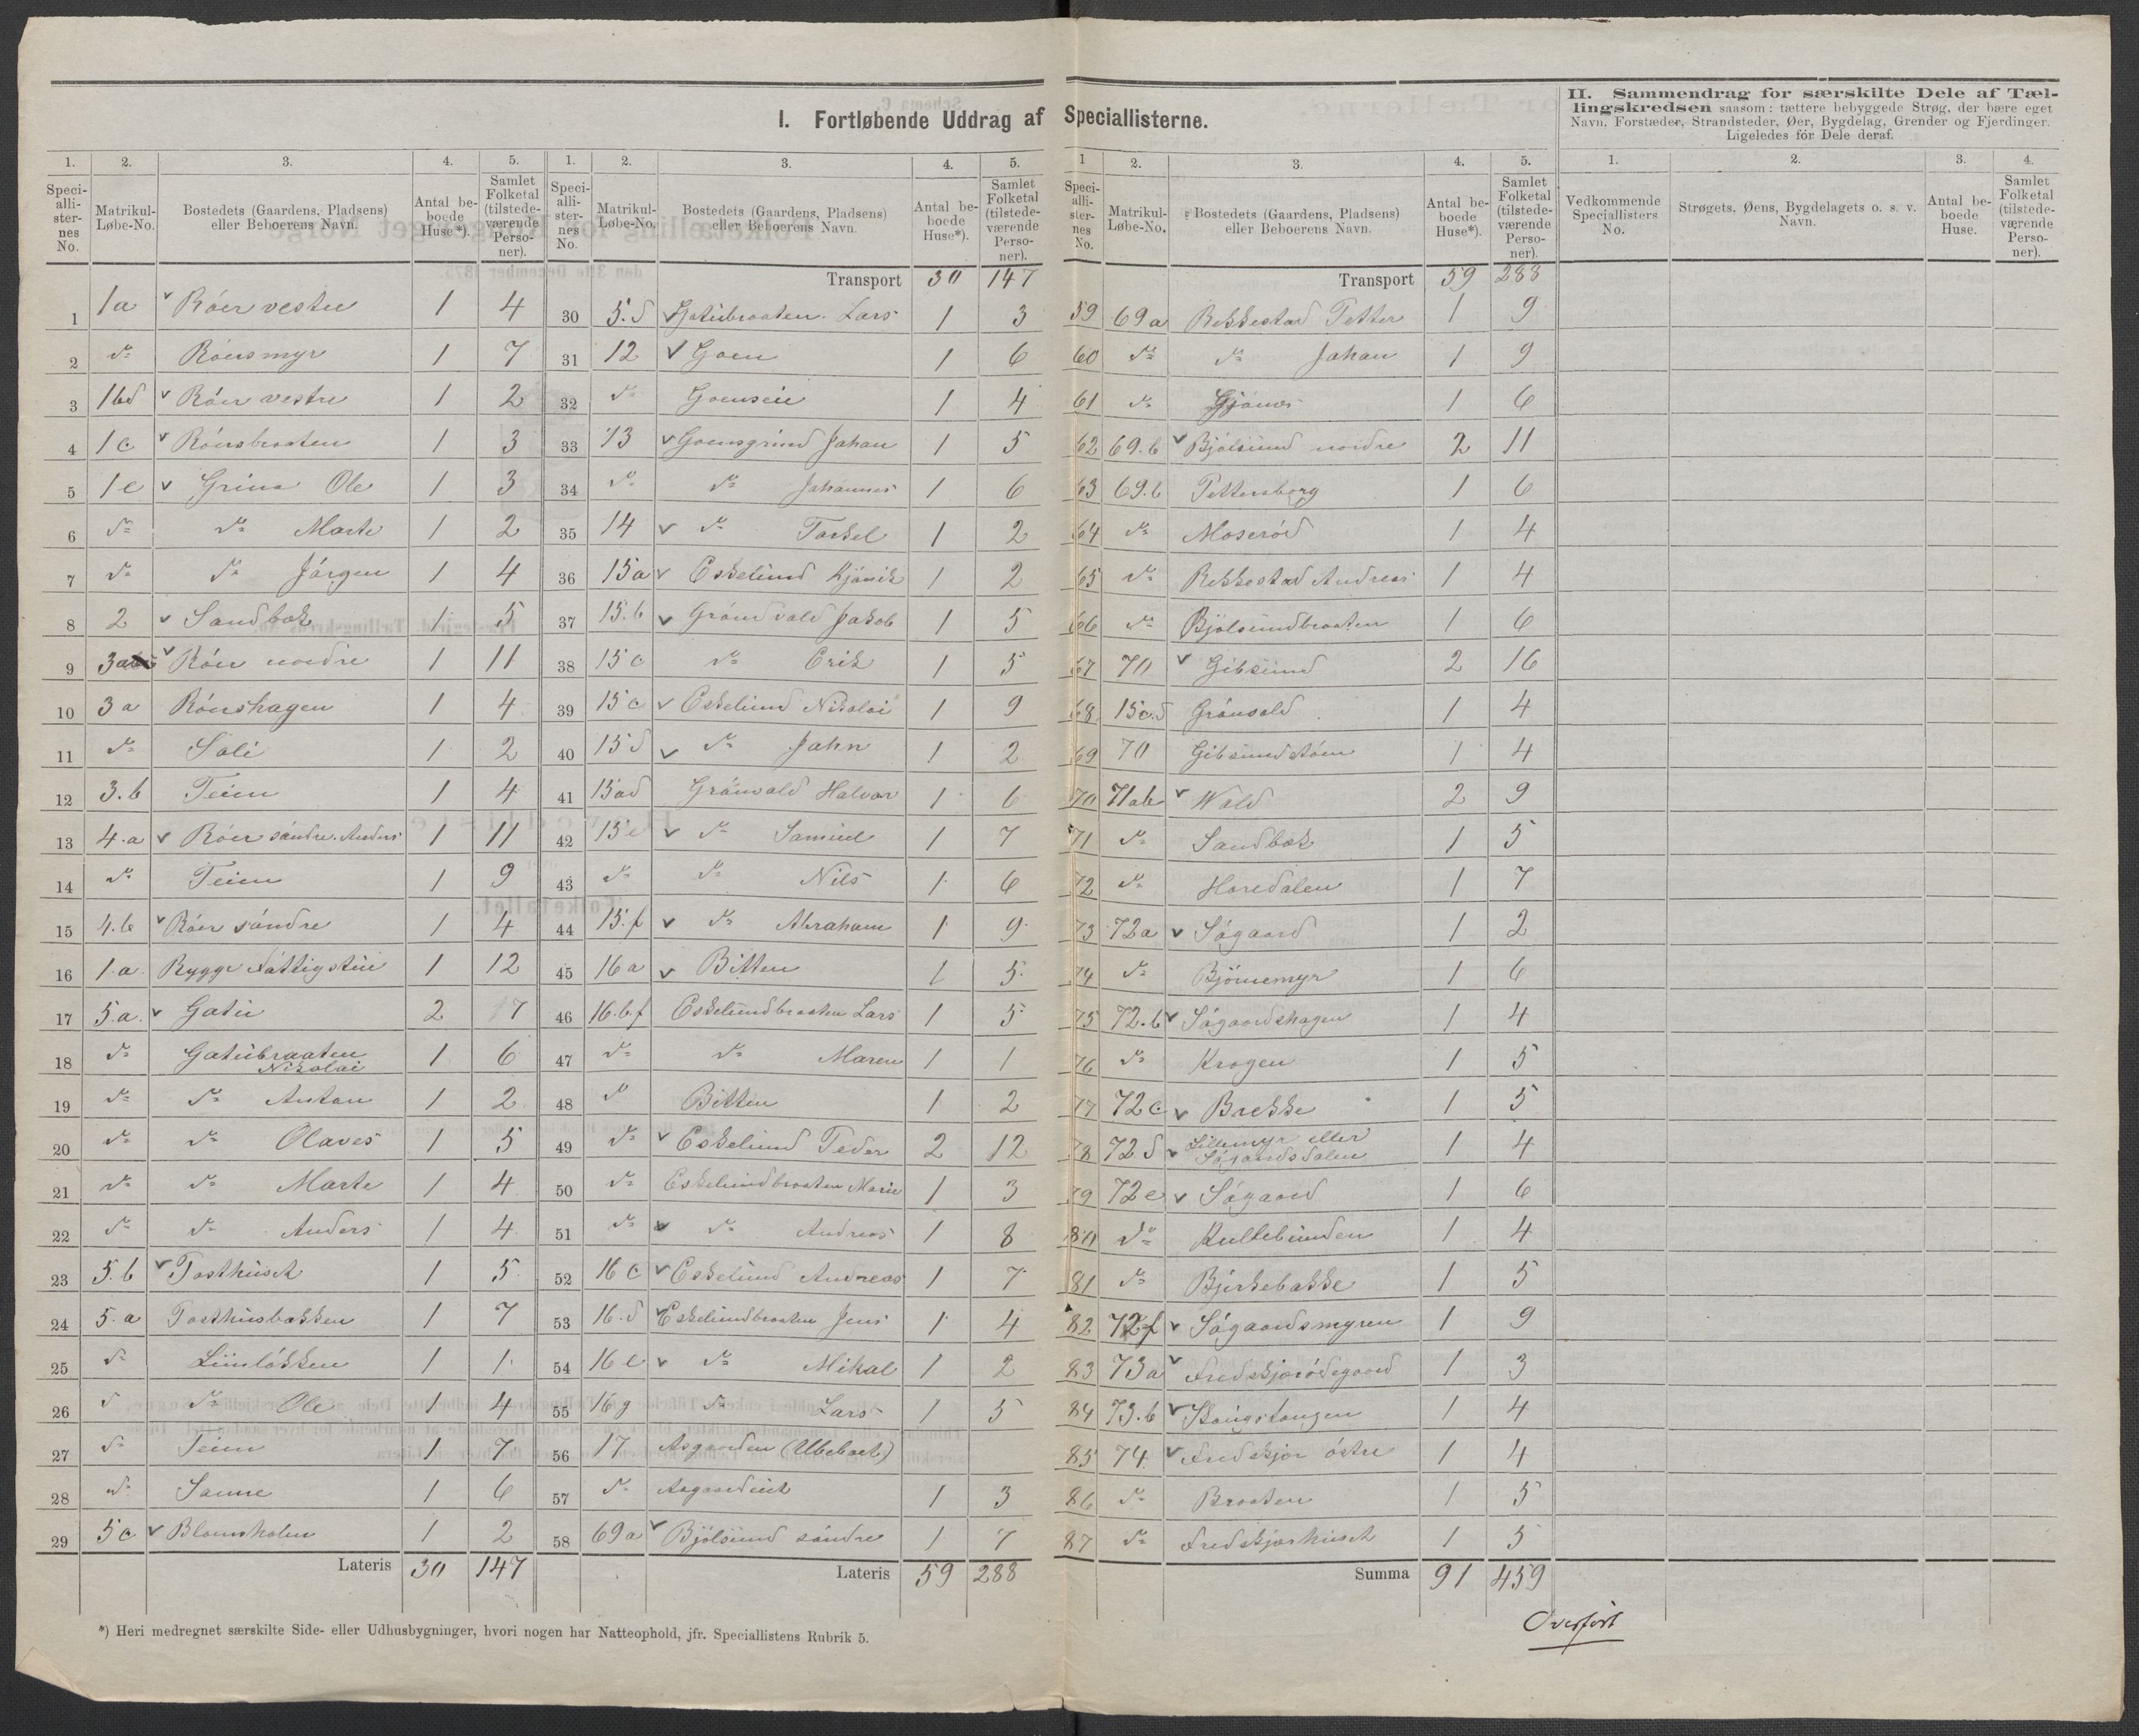 I. Fortløbende Uddrag af Speciallisterne.
II. Sammendrag for særskilte Dele af Tæl-
lingskredsen saasom: tættere bebyggede Strøg, der bære eget
Navn, Forstæder, Strandsteder, Øer, Bygdelag, Grender og Fjerdinger.
Ligeledes for Dele deraf.
1. 2. 3. 4. 5.
Speci-alli-ster-nes No. Matrikul-Løbe-No. Bostedets (Gaardens, Pladsens) eller Beboerens Navn. Antal be-boede Huse*). Samlet Folketal (tilstede-værende Perso-ner).
1 1a Róer vestre 1 4
2 do Róersmyr 1 7
3 1bd Róer vestre 1 2
4 1c Róersbraaten 1 3
5 1e Grina Ole 1 3
6 do do Marte 1 2
7 do do Jórgen 1 4
8 2 Sandbæk 1 5
9 3a Róer nordre 1 11
10 3a Róershagen 1 4
11 do Soli 1 2
12 3.b Teien 1 4
13 4.a Róer sóndre. Anders 1 11
14 do Teien 1 9
15 4.b Róer sóndre 1 4
16 1.a. Rygge Fattigstue 1 12
17 5.a. Gatu 2 7
18 do Gatubraaten Nikolai 1 6
19 do do Anton 1 2
20 do do Olaves 1 5
21 do do Marte 1 4
22 do do Anders 1 4
23 5.b Posthuset 1 5
24 5.a Posthusbakken 1 7
25 do Lunlókken 1 1
26 do do Ole 1 4
27 do Teien 1 7
28 do Sanne 1 6
29 5c Blomsholm 1 2
Lateris 30 147
1. 2. 3. 4. 5.
Speci-alli-ster-nes No. Matrikul-Løbe-No. Bostedets (Gaardens, Pladsens) eller Beboerens Navn. Antal be-boede Huse*). Samlet Folketal (tilstede-værende Perso-ner).
Transport 30 147
30 5.d Gatubraaten. Lars 1 3
31 12 Goen 1 6
32 do Goenseie 1 4
33 13 Goensgrind Johan 1 5
34 do do Johannes 1 6
35 14 do Torkel 1 2
36 15a Eskelund Kjónik 1 2
37 15.b Grónvald Jakob 1 5
38 15c do Erik 1 5
39 15c Eskelund Nikolai 1 9
40 15d do John 1 2
41 15ad Grónvald Halvor 1 6
42 15e do Samuel 1 7
43 do do Nils 1 6
44 15.f do Abraham 1 9
45 16a Bitten 1 5
46 16.b.f Eskelundbraaten Lars 1 5
47 do do Maren 1 1
48 do Bitten 1 2
49 do Eskelund Peder 2 12
50 do Eskelundbraaten Marie 1 3
51 do do Andreas 1 8
52 16c Eskelund Andreas 1 7
53 16.d Eskelundbraaten Jens 1 4
54 16e do Mikal 1 2
55 16g do Lars 1 5
56 17 Asgaarden (Ubeboet)
57 do Asgaardeiet 1 3
58 69a Bjólsund sóndre 1 7
Lateris 59 288
1 2. 3. 4. 5.
Speci-alli-ster-nes No. Matrikul-Løbe-No. Bostedets (Gaardens, Pladsens) eller Beboerens Navn. Antal be-boede Huse*). Samlet Folketal (tilstede-værende Perso-ner).
Transport 59 288
59 69a Rekkestad Petter 1 9
60 do do Johan 1 9
61 do 1 6
62 69.b Bjólsund nordre 2 11
63 69.b Pettersborg 1 6
64 do Moseród 1 4
65 do Rekkestad Andreas 1 4
66 do Bjólsundbraaten 1 6
67 70 Gibsund 2 16
68 15c.d Grónvold 1 4
69 70 Gibsundstóen 1 4
70 71ab Wold 2 9
71 do Sandbæk 1 5
72 do Horedalen 1 7
73 72a Sógaard 1 2
74 do Bjórnemyr 1 6
75 72.b Sógaardshagen 1 4
76 do Krogen 1 5
77 72c Bække 1 5
78 72d Lillemyr eller Sógaardsdalen 1 4
79 72e Sógaard 1 6
80 do Kullebunden 1 4
81 do Bjerkebakke 1 5
82 72f Sógaardsmyren 1 9
83 73a Fredskjæródegaard 1 3
84 73.b Skougstangen 1 4
85 74 Fredskjær óstre 1 4
86 do Braaten 1 5
87 do Fredskjærhuset 1 5
Summa 91 459
1. 2. 3. 4.
Vedkommende Speciallisters No. Strøgets, Øens, Bygdelagets o. s. v. Navn. Antal be-boede Huse. Samlet Folketal (tilstede-værende Perso-ner).
*) Heri medregnet særskilte Side- eller Udhusbygninger, hvori nogen har Natteophold, jfr. Speciallistens Rubrik 5.
Overfórt